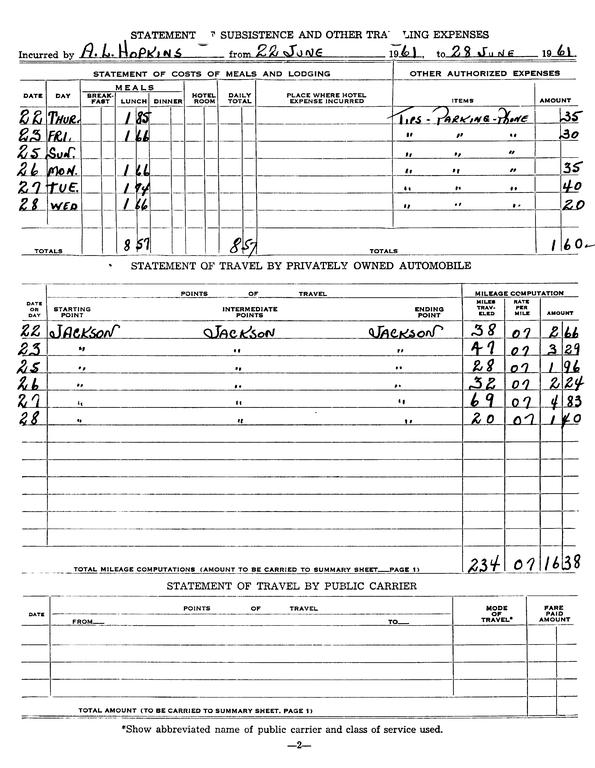 STATEMENT SUBSISTENCE AND OTHER TRA LING EXPENSES
Incurred by A. L. HOPKINS from 22 JUNE 1961, to 28 JUNE 1961
STATEMENT OF COSTS OF MEALS AND LODGING OTHER AUTHORIZED EXPENSES
DATE DAY MEALS BREAK-FAST LUNCH DINNER HOTEL ROOM DAILY TOTAL PLACE WHERE HOTEL EXPENSE INCURRED ITEMS AMOUNT
22 THUR. 1 85 TIPS - PARKING - PHONE 35
23 FRI. 1 66 " " " 30
25 SUN. " " "
26 MON. 1 66 " " " 35
27 TUE. 1 74 " " " 40
28 WED 1 66 " " " 20
TOTALS 8 57 8 57 TOTALS 1 60
STATEMENT OF TRAVEL BY PRIVATELY OWNED AUTOMOBILE
POINTS OF TRAVEL MILEAGE COMPUTATION
DATE OR DAY STARTING POINT INTERMEDIATE POINTS ENDING POINT MILES TRAV-ELED RATE PER MILE AMOUNT
22 JACKSON JACKSON JACKSON 38 07 2 66
23 " " " 47 07 3 29
25 " " " 28 07 1 96
26 " " " 32 07 2 24
27 " " " 69 07 4 83
28 " " " 20 07 1 40
TOTAL MILEAGE COMPUTATIONS (AMOUNT TO BE CARRIED TO SUMMARY SHEET__PAGE 1) 234 07 16 38
STATEMENT OF TRAVEL BY PUBLIC CARRIER
DATE POINTS OF TRAVEL MODE OF TRAVEL* FARE PAID AMOUNT
FROM__ TO__
TOTAL AMOUNT (TO BE CARRIED TO SUMMARY SHEET. PAGE 1)
*Show abbreviated name of public carrier and class of service used.
—2—